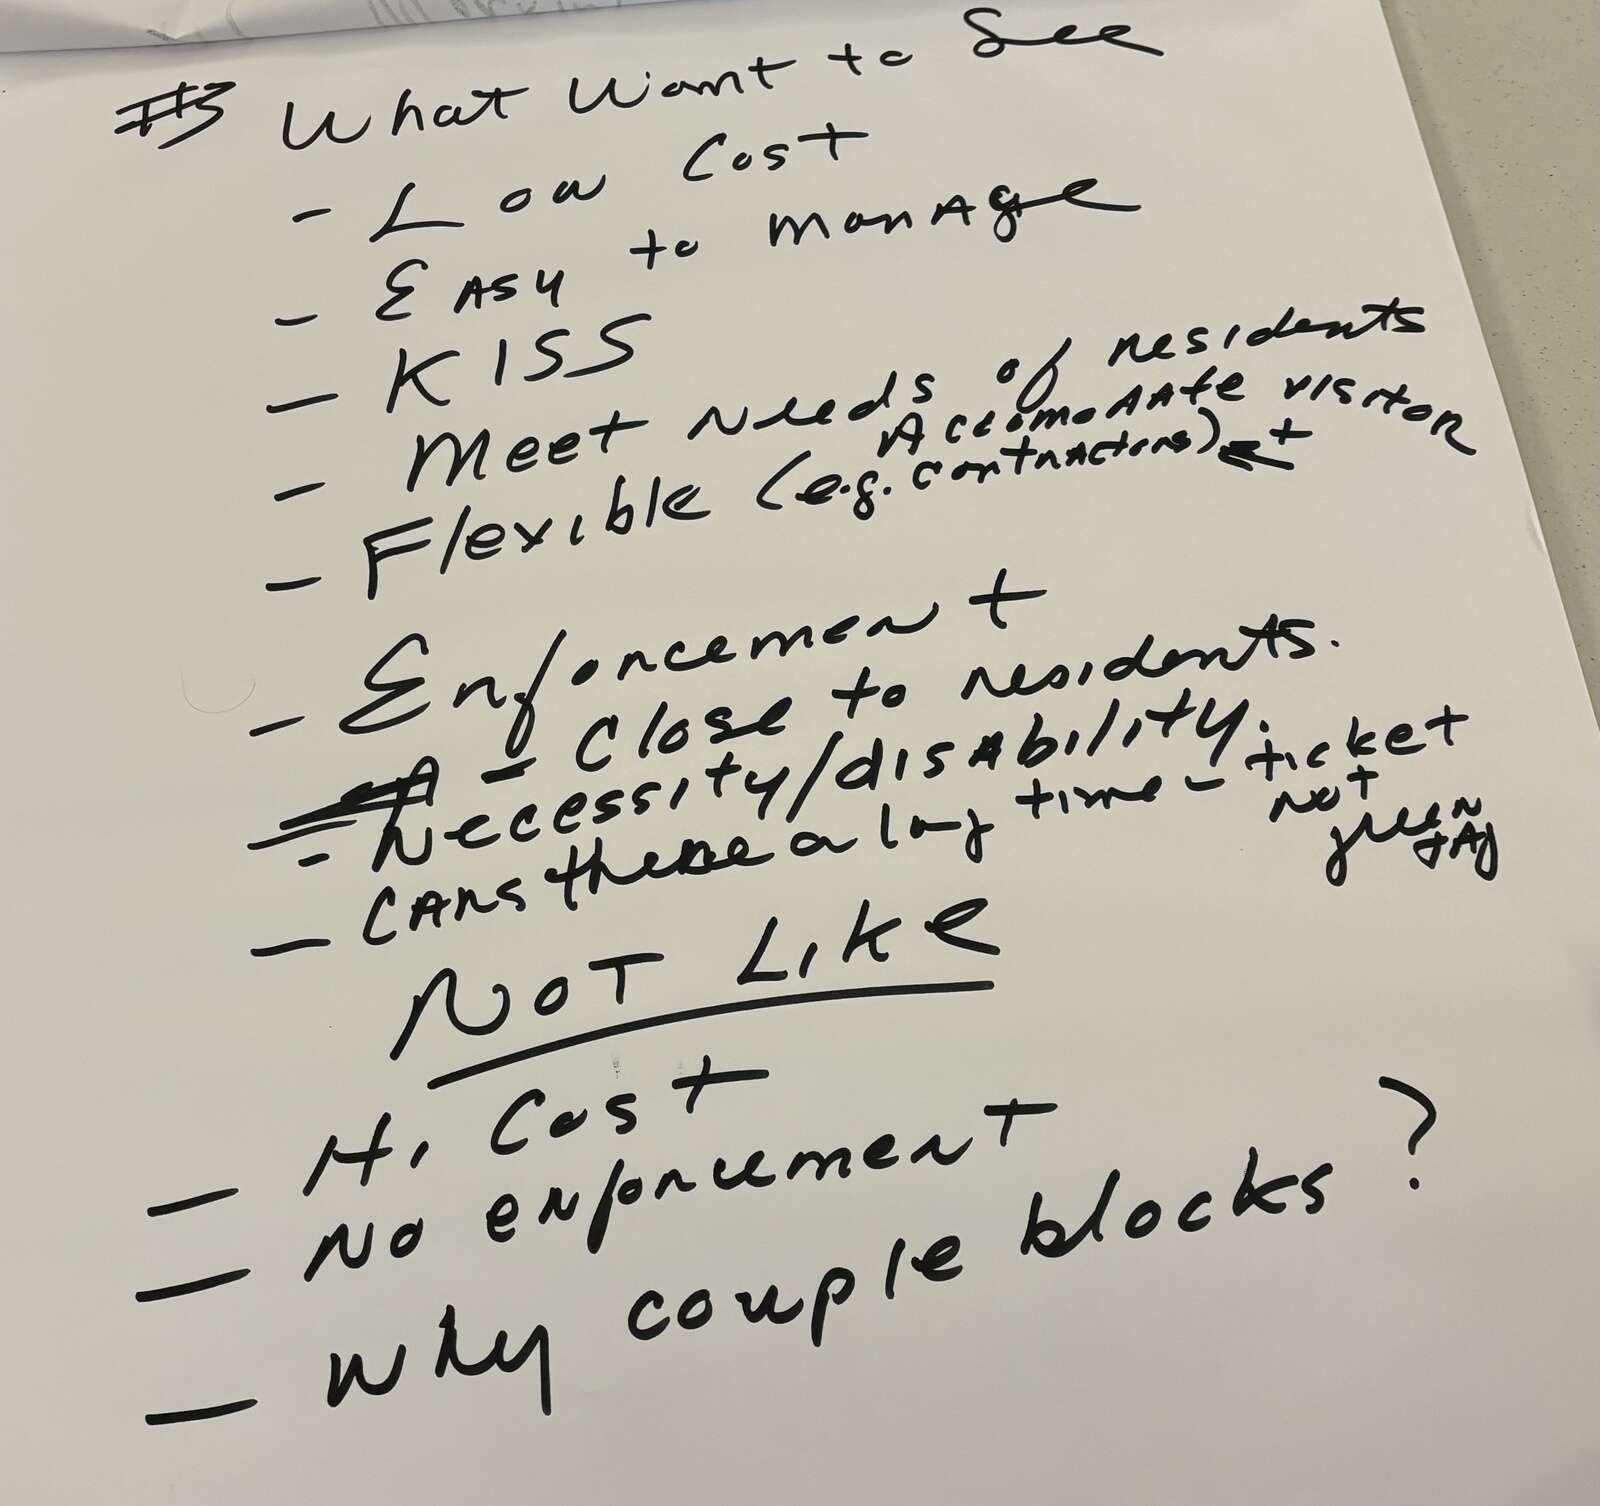 #3 What Want to See
- Low Cost
- EASY to manage
- KISS
- Meet Needs of residents
Accomodate visitor
- Flexible (e.g. contractors)
- Enforcement
- Close to residents.
- Necessity/disability.
- CARS there a long time - ticket
not
green
tag
NOT LIKE
- Hi Cost
- No enforcement
- Why couple blocks?